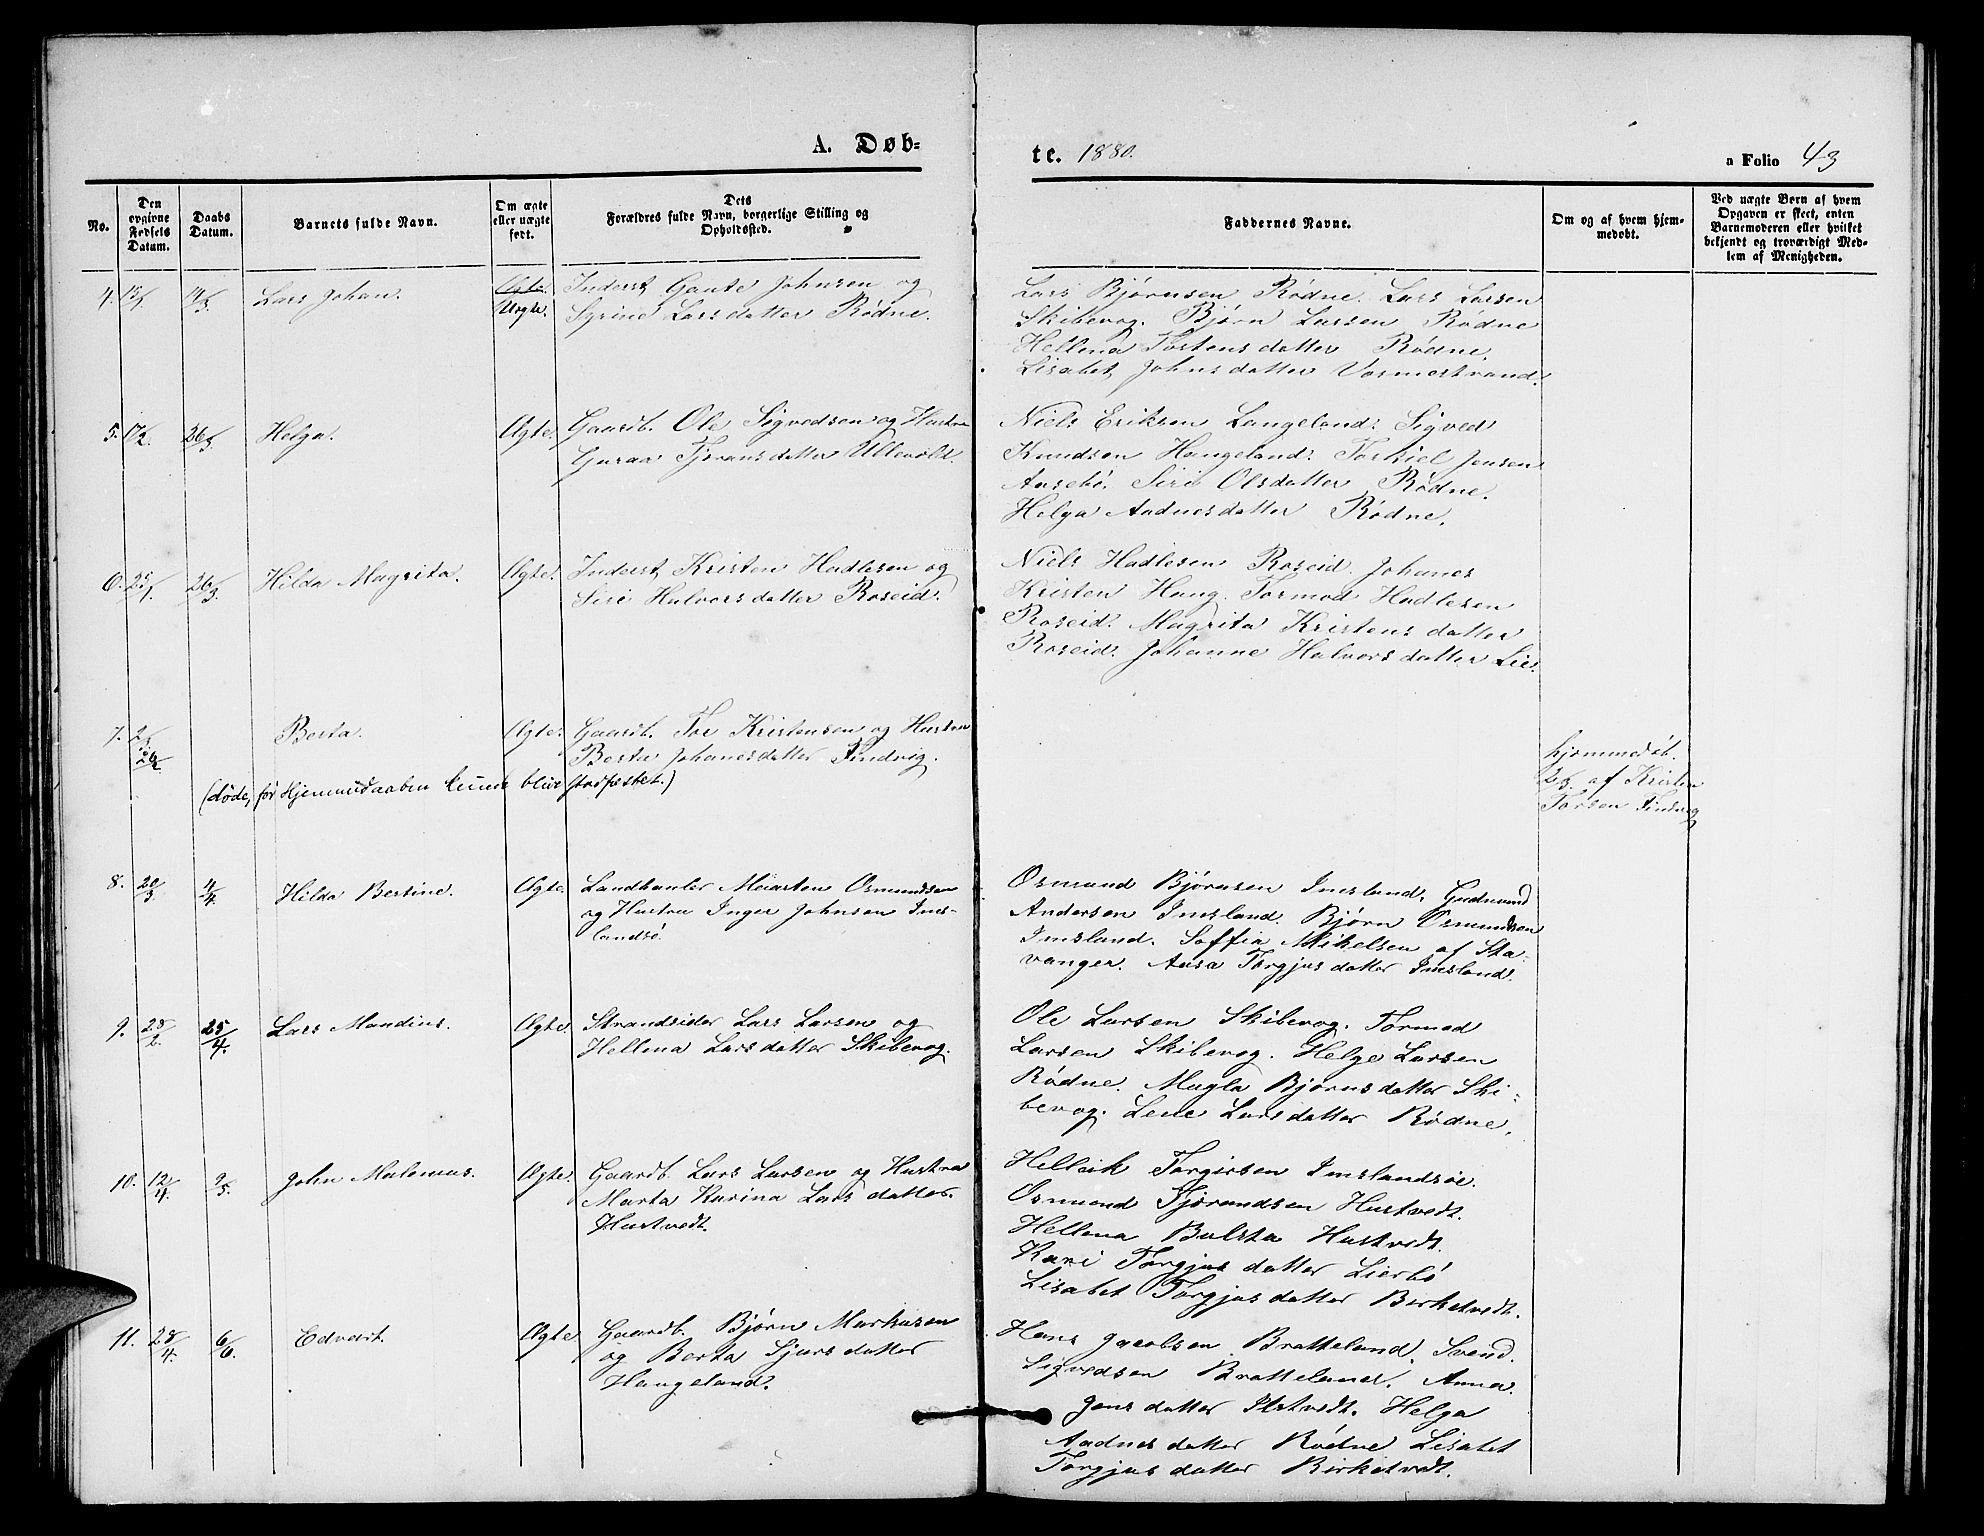 A. Døb-
te. 1880.
a Folio 43
No.
Den
opgivne
Fødsels
Datum.
Daabs
Datum.
Barnets fulde Navn.
Om ægte
eller uægte
født.
Dets
Forældres fulde Navn, borgerlige Stilling og
Opholdssted.
Faddernes Navne.
Om og af hvem hjem-
medøbt.
Ved uægte Børn af hvem
Opgaven er skeet, enten
Barnemoderen eller hvilket
bekjendt og troværdigt Med-
lem af Menigheden.
4. 14/3 Lars Johan. Ægte. Inderst Gaute Johnsen og
Uægte. Syrine Larsdatter Rødne.
Lars Bjørnsen Rødne. Lars Larsen
Skibevog. Bjørn Larsen Rødne
Hellena Tostensdatter Rødne.
Lisabet Johnsdatter Varmestrand.
5. 26/3 Helga. Ægte. Gaardb. Ole Sigvedsen og Hustru
Guraa Tjoransdatter Ullevold.
Niels Eriksen Langeland. Sigved
Knudsen Haugeland. Torkiel Jensen
Aasebø. Siri Olsdatter Rødne.
Helga Aadnesdatter Rødne.
6. 25/1. 26/3 Hilda Magrita. Ægte. Inderst Kristen Hadlesen og
Siri Halvorsdatter Roseid.
Niels Hadlesen Roseid. Johanes
Kristen Haug. Tormod Hadlesen
Roseid. Magrita Kristensdatter
Roseid. Johanne Halvorsdatter Lie.
7. Berta. Ægte. Gaardb. Tor Kristensen og Hustru
Berta Johanesdatter Tindvig.
(døde, før Hjemmedaaben kunde blive stadfæstet.)
hjemmedøbt
2/3. af Kristen
Torsen Tindvig
8. 20/3 4/4 Hilda Bertine. Ægte. Landhanler Maarten Osmundsen
og Hustru Inger Johnsen Ims-
landsø.
Osmund Bjørnsen Imsland. Gudmund
Andersen Imsland. Bjørn Osmundsen
Imsland. Soffia Mikelsen af Sta-
vanger. Aasa Torgjusdatter Imsland.
9. 28/2. 25/4. Lars Mandius. Ægte. Strandsider Lars Larsen og
Hellena Larsdatter Skibevog.
Ole Larsen Skibevog. Tormod
Larsen Skibevog. Helge Larsen
Rødne. Magla Bjørnsdatter Ski-
bevog. Lene Larsdatter Rødne.
10. 12/4. 9/5. John Malenius. Ægte. Gaardb. Lars Larsen og Hustru
Marta Karina Larsdatter.
Hustvedt.
Helleik Torgirsen Imslandsøe.
Osmund Tjorandsen Hustvedt.
Hellena Balsta Hustvedt.
Kari Torgjusdatter Lierbø
Lisabet Torgjusdatter Birketvedt.
11. 28/4. 6/6. Edvart. Ægte Gaardb. Bjørn Markusen
og Berta Sjursdatter
Haugeland.
Hans Jacobsen Bratteland. Svend.
Sigvedsen Bratteland. Anna.
Jensdatter Ilstvedt. Helga
Aadnesdatter Rødne Lisabet
Torgjusdatter Birketvedt.